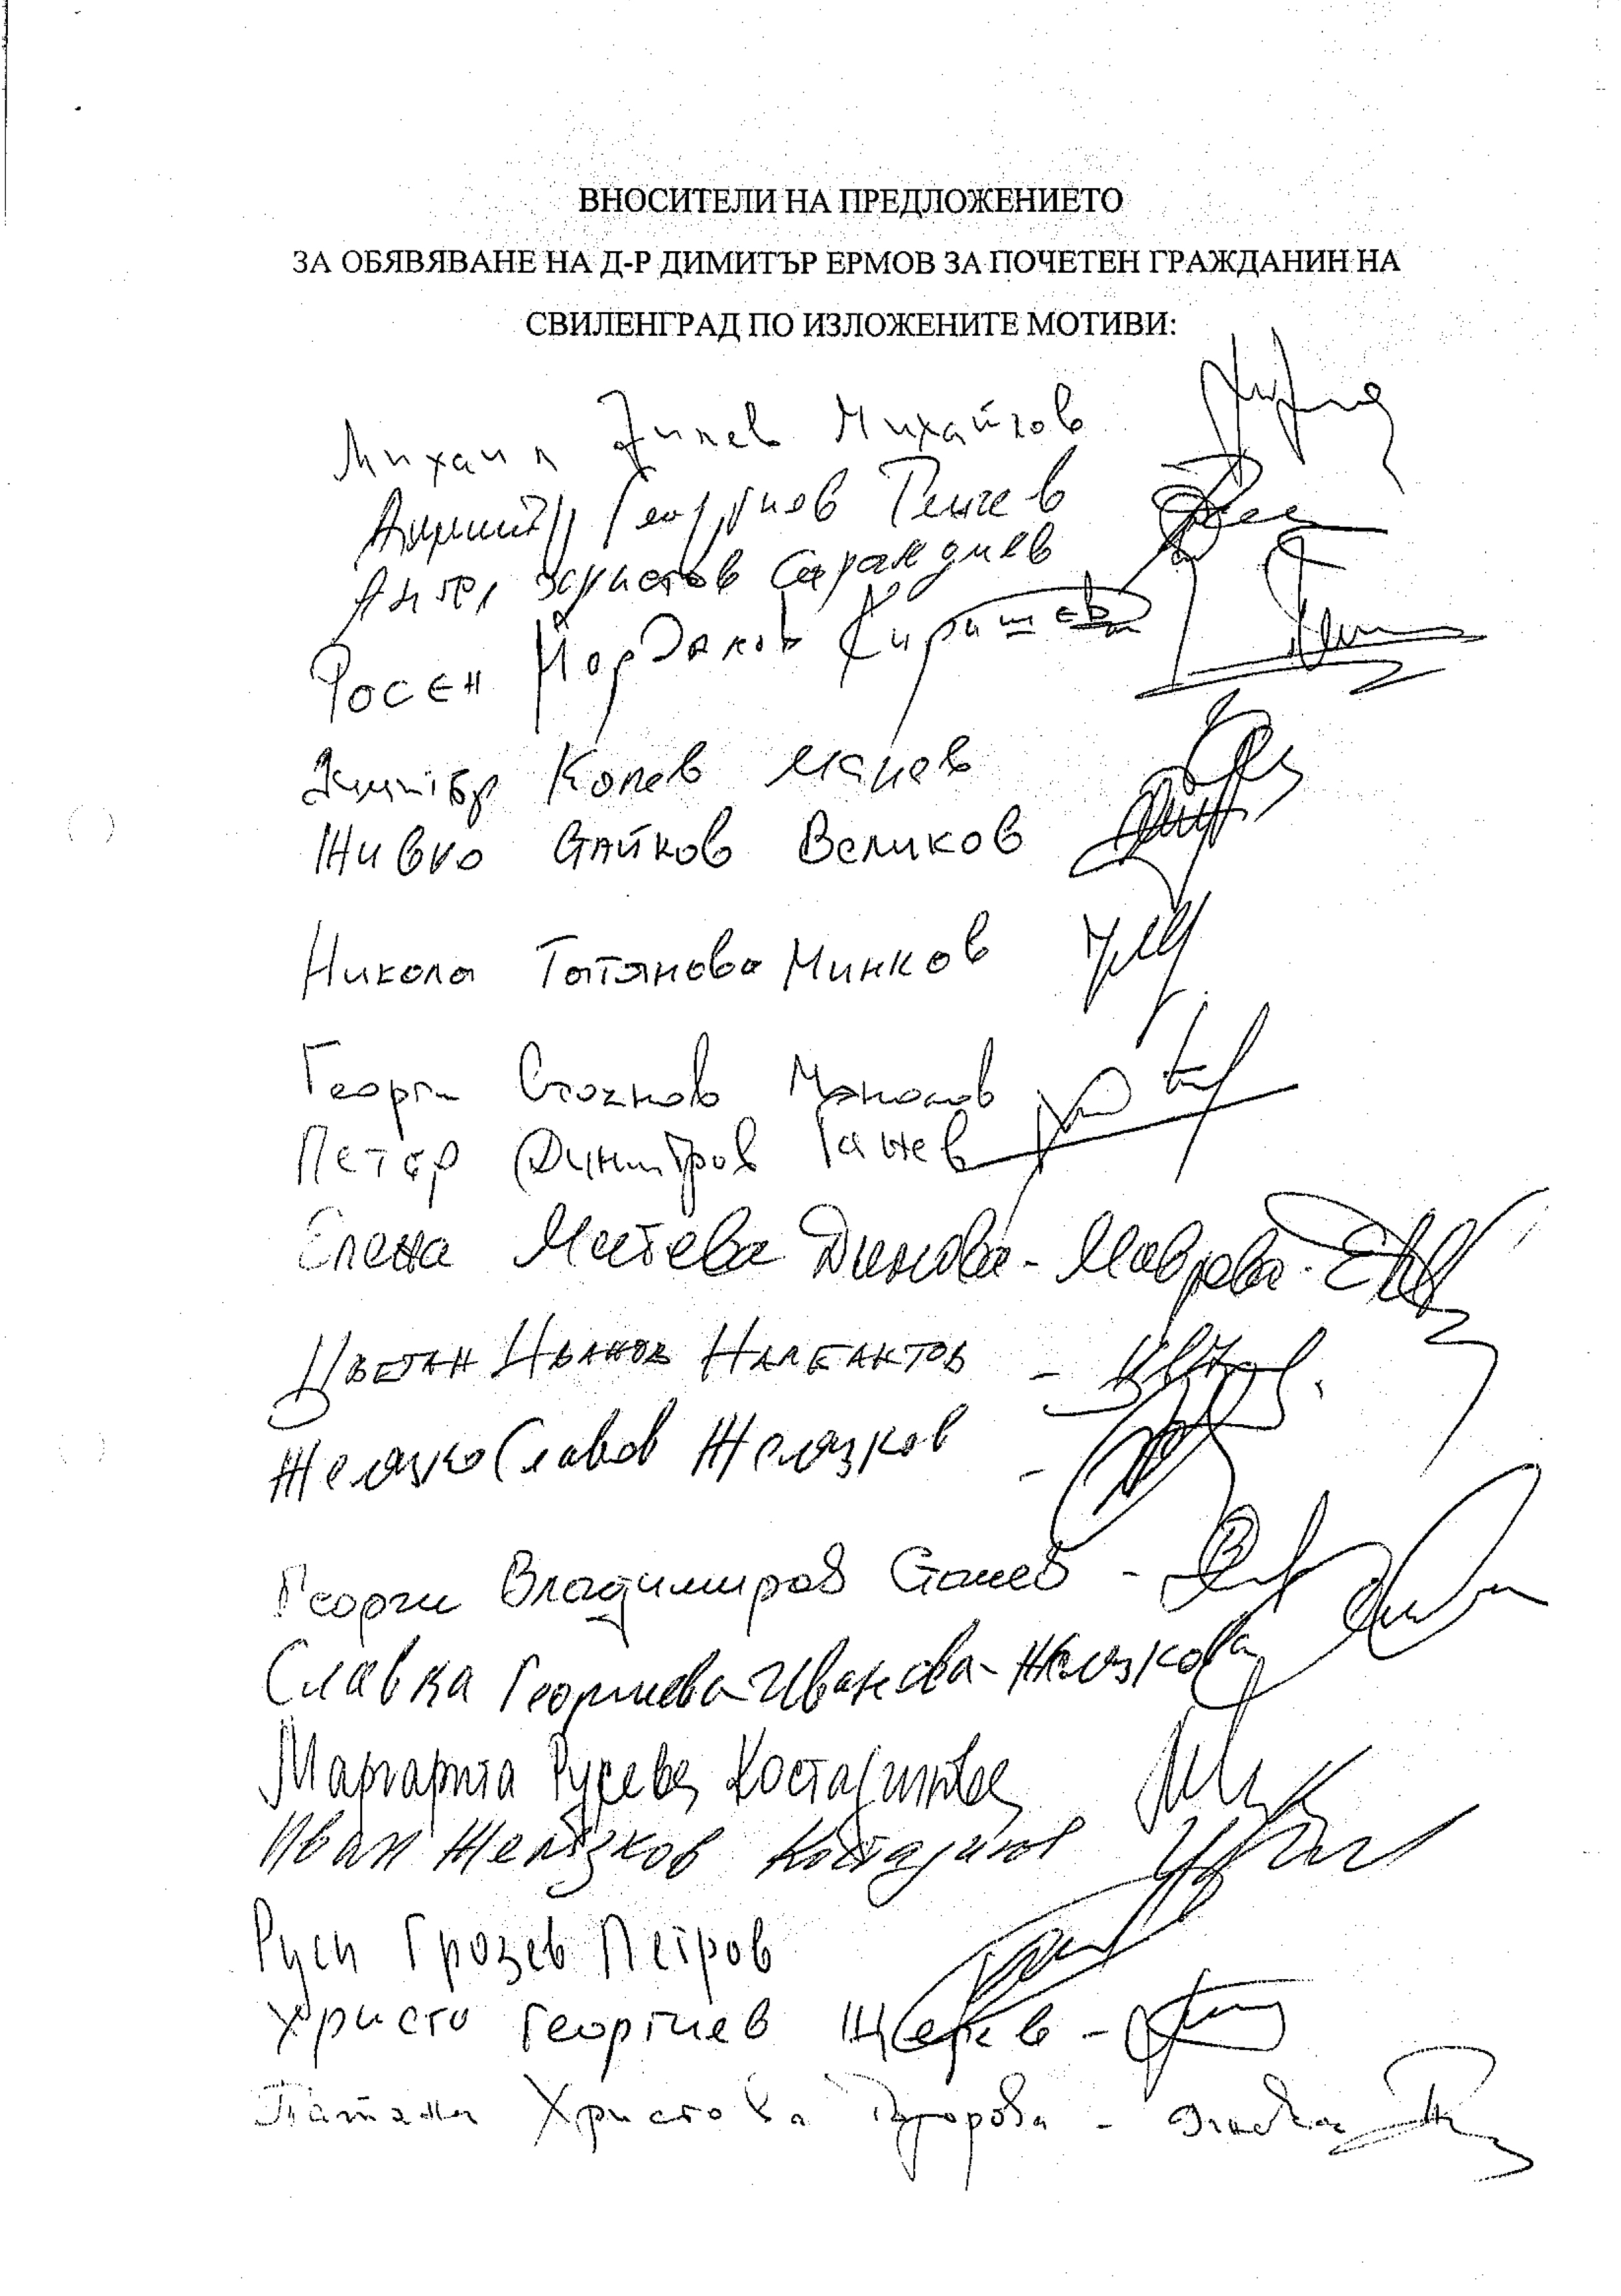 ВНОСИТЕЛИ НА ПРЕДЛОЖЕНИЕТО
ЗА ОБЯВЯВАНЕ НА Д-Р ДИМИТЪР ЕРМОВ ЗА ПОЧЕТЕН ГРАЖДАНИН НА
СВИЛЕНГРАД ПО ИЗЛОЖЕНИТЕ МОТИВИ:
Михаил Михайлов
Димитър Георгиев Тенчев
Ангел Христов Сарандиев
Росен Йорданов Киришев
Димитър Колев Манев
Живко Стайков Великов
Никола Татянова Минков
Георги Стоянов Манолов
Петър Димитров Ганев
Елена Митева Димова-Маврова-
Цветан Иванов Налбантов -
Желязко Славов Желязков -
Георги Владимиров Станев -
Славка Георгиева Иванова-Желязкова
Маргарита Русева Костадинова
Иван Желязков Костадинов
Руси Грозев Петров
Христо Георгиев -
Татяна Христова Тодорова -